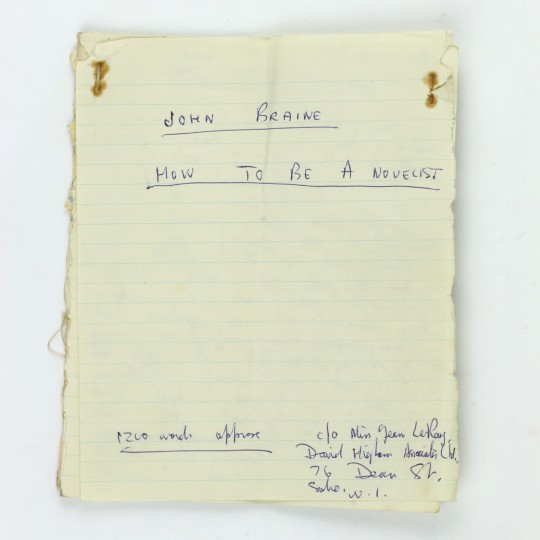 JOHN BRAINE
HOW TO BE A NOVELIST
1200 words approx
c/o Miss Jean LeRoy,
David Higham Associates Ltd.,
76 Dean St.,
Soho. W.1.